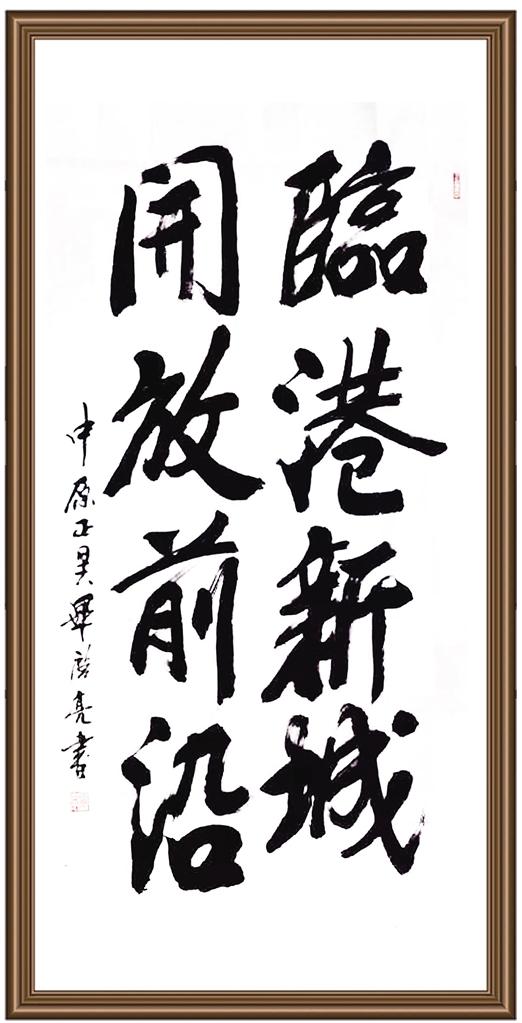 臨港新城
開放前沿
中原畢啟亮書